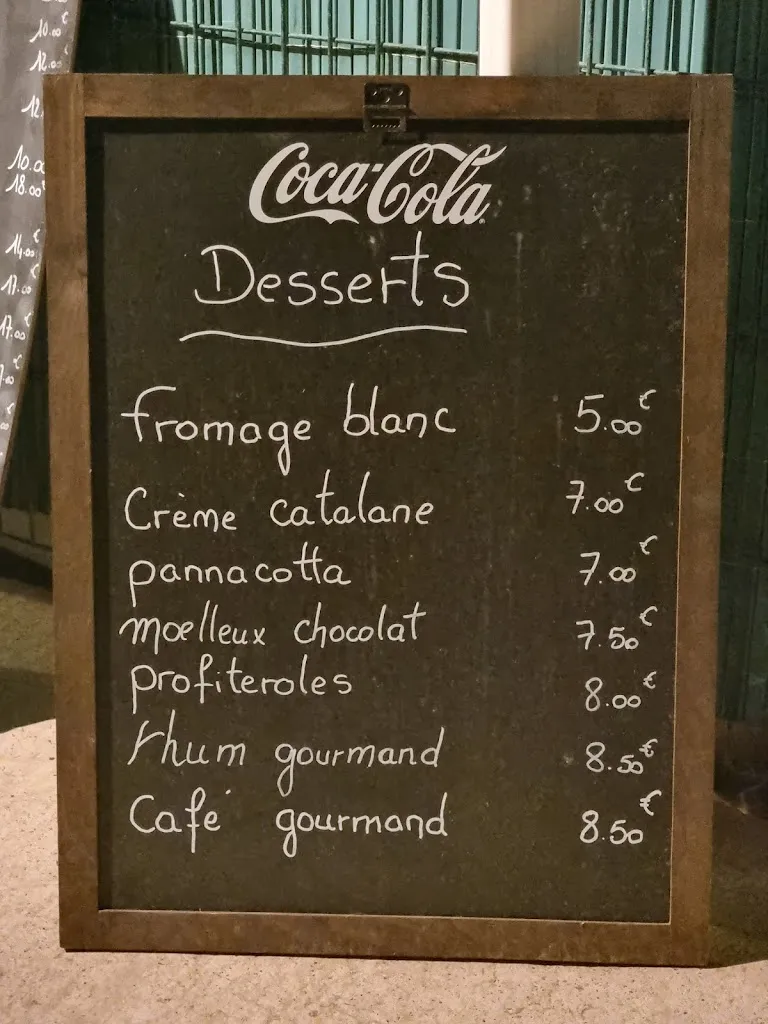 Coca-Cola
Desserts
fromage blanc 5.00€
Crème catalane 7.00€
pannacotta 7.00€
moelleux chocolat 7.50€
profiteroles 8.00€
rhum gourmand 8.50€
Café gourmand 8.50€
10.00€
12.00€
12
10.00
18.00€
14.00€
17.00€
17.00€